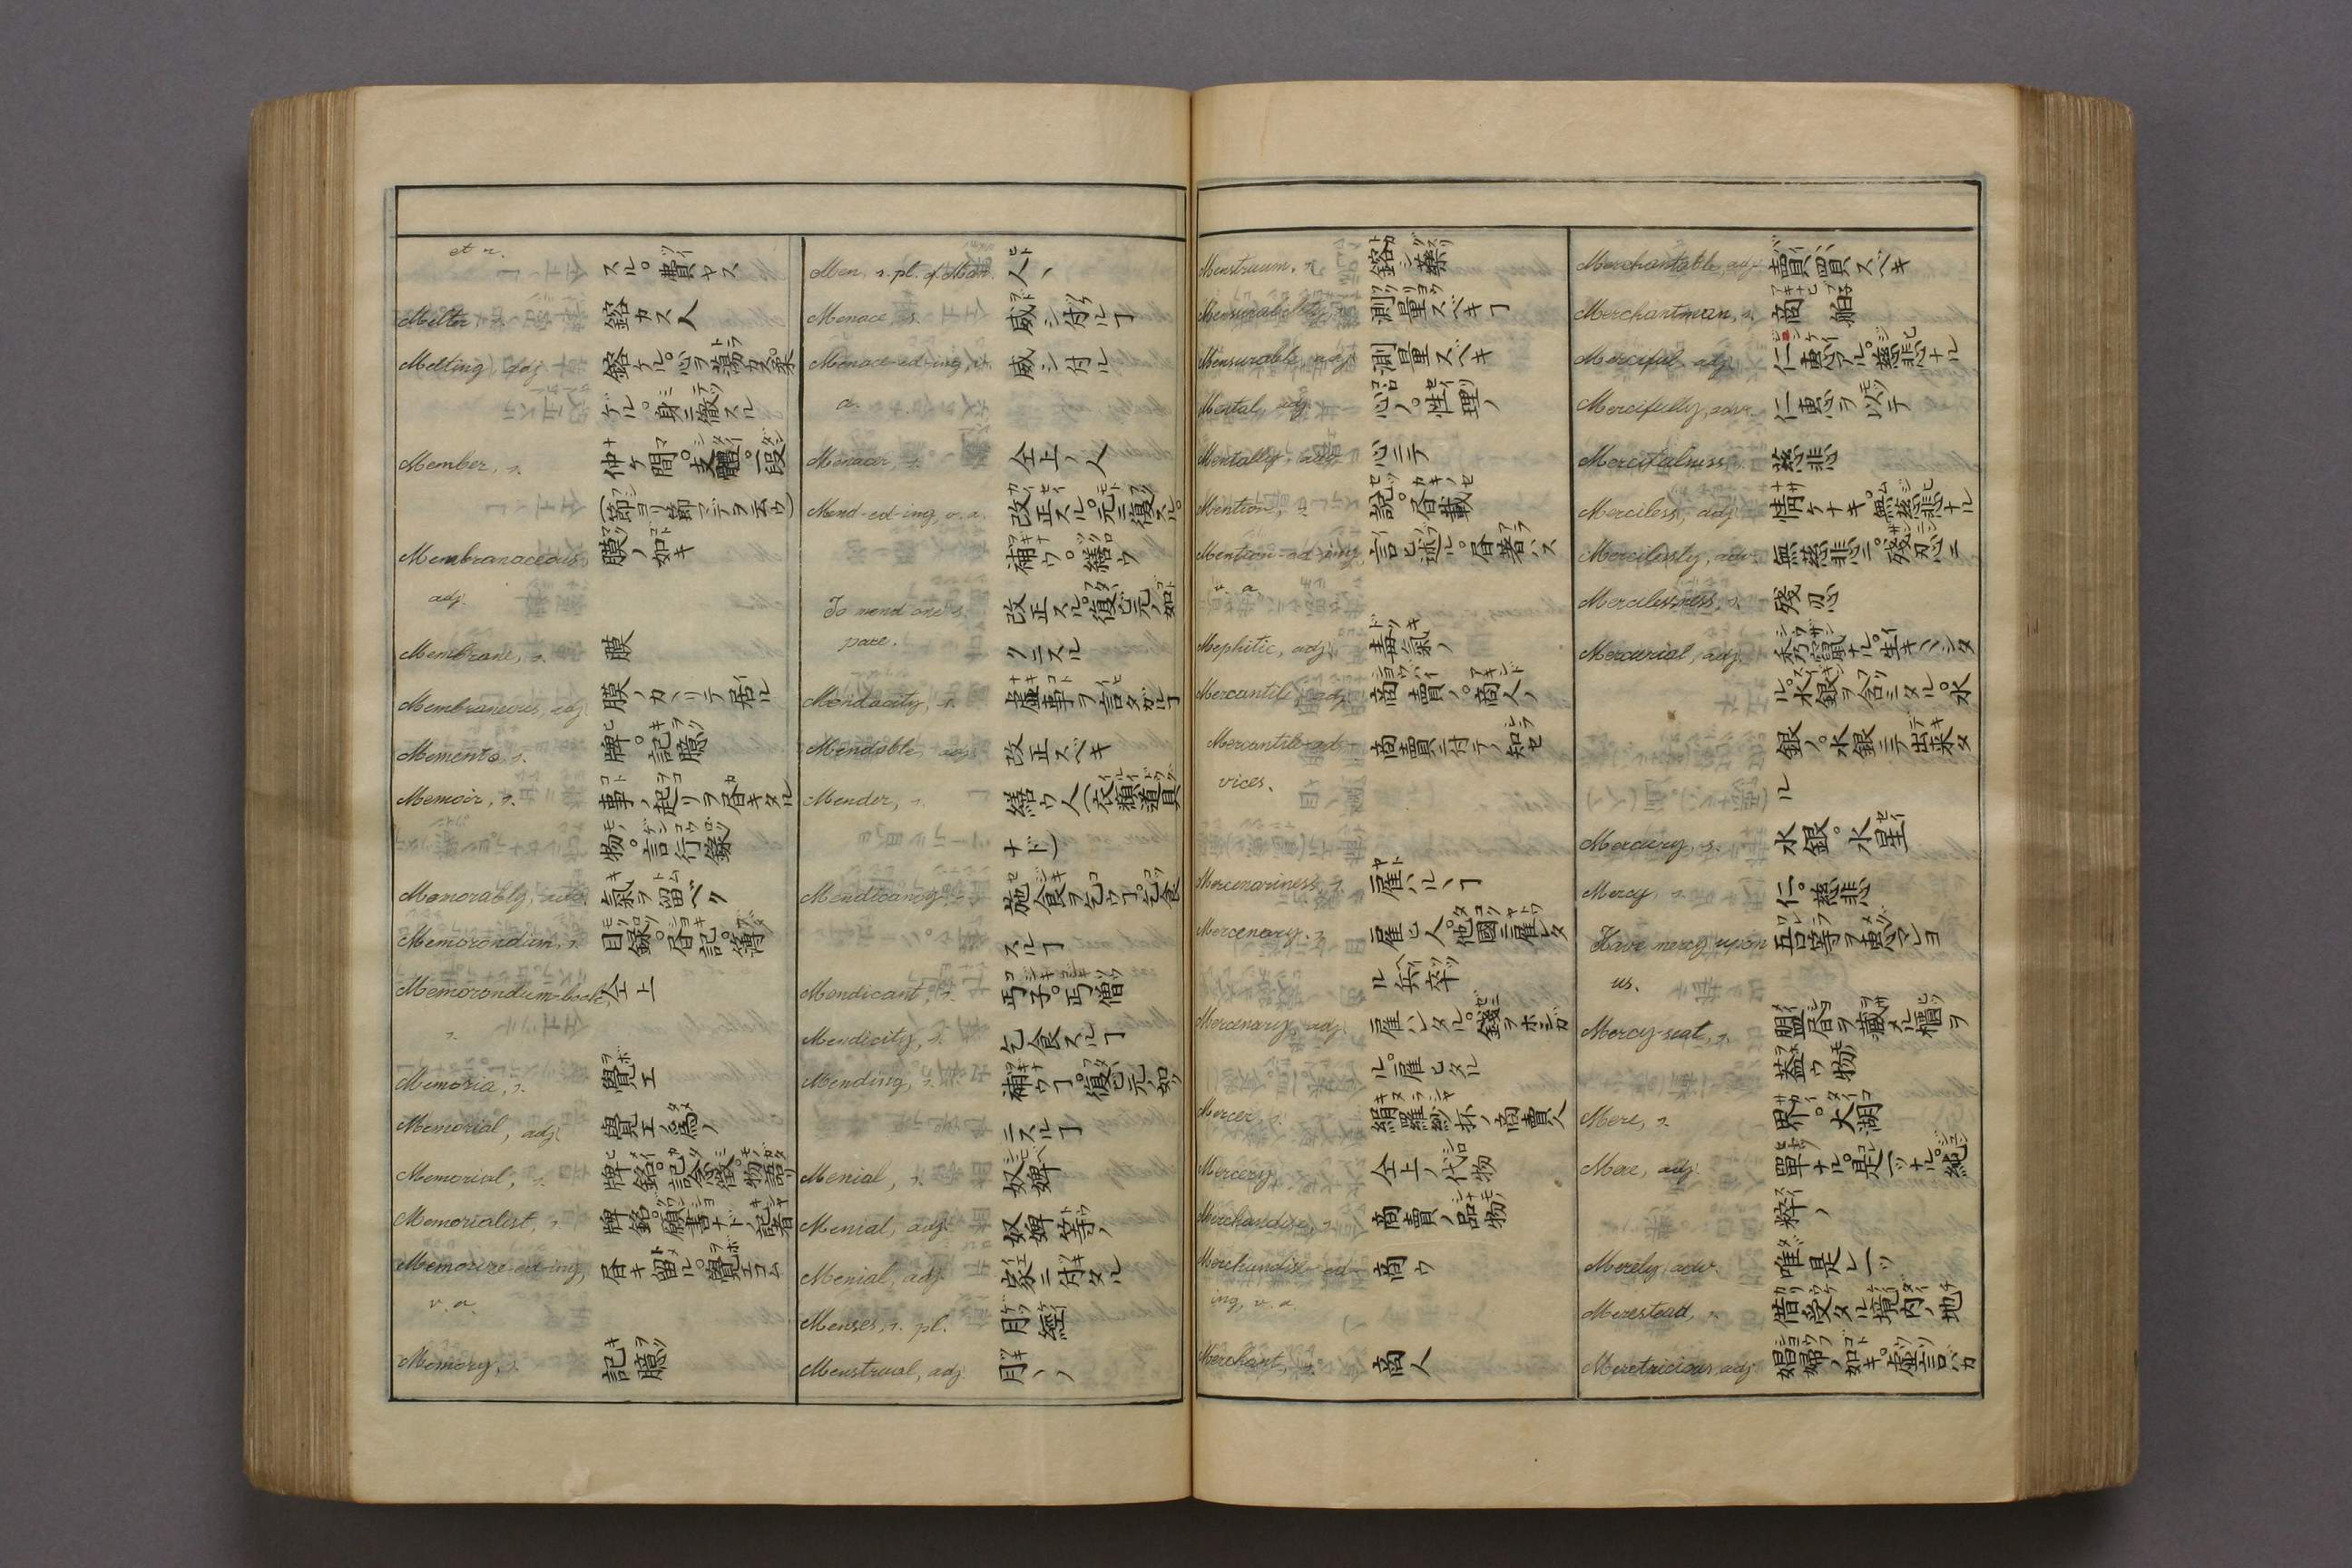 et n. スル。費ヤス
Melter 鎔カス人
Melting adj 鎔ケル。心ヲ蕩カス。柔
ゲル。身ニ徹スル
Member, s. 仲ケ間。支體。一段
(節ヨリ節マデヲ云ウ)
Membranaceous, 膜ノ如キ
adj.
Membrane, s. 膜
Membraneous, adj 膜ノカヽリテ居ル
Memento, s. 牌。記臆
Memoir, s. 事ノ起リヲ書キタル
物。言行錄
Memorably, adv. 氣ヲ留ベク
Memorondum, s. 目錄。書記。簿
Memorondum-book, 仝上
s.
Memoria, s. 覺エ
Memorial, adj. 覺エノ爲ノ
Memorial, s. 牌銘。記念徵。物語
Memorialist, s. 牌銘。願書ナドノ記者
Memorize-ed-ing, 書キ留ル。覺エコム
v. a.
Memory, s. 記臆
Men, s. pl. of Man. 人ヽ
Menace, s. 威シ付ルヿ
Menace-ed-ing, v. 威シ付ル
a.
Menacer, s. 仝上ノ人
Mend-ed-ing, v. a. 改正スル。元ニ復スル。
補ウ。繕ウ
To mend one's 改正スル。復ビ元ノ如
pace. クニスル
Mendacity, s. 虛事ヲ言タガルヿ
Mendable, adj 改正スベキ
Mender, s. 繕ウ人(衣類道具
ナド)
Mendicancy, s. 施食ヲ乞ウヿ。乞食
スルヿ
Mendicant, s. 丐子。丐僧
Mendicity, s. 乞食スルヿ
Mending, s. 補ウヿ。復ビ元ノ如ク
ニスルヿ
Menial, s. 奴婢
Menial, adj. 奴婢等ノ
Menial, adj. 家ニ付タル
Menses, s. pl. 月經
Menstrual, adj. 月ヽノ
Menstruum, s. 鎔シ藥
Mensurability, s. 測量スベキヿ
Mensurable, adj 測量スベキ
Mental, adj. 心ノ。性理ノ
Mentally, adv. 心ニテ
Mention, s. 說。書載
Mention-ed-ing, 言ヒ述ル。書著ハス
v. a.
Mephitic, adj. 毒氣ノ
Mercantile, adj. 商賣ノ。商人ノ
Mercantile-ad- 商賣ニ付テノ知セ
vices.
Mercenariness, s. 雇ハルヽヿ
Mercenary. s. 雇ヒ人。他國ニ雇レタ
ル兵卒
Mercenary, adj. 雇ハレタル。錢ヲホシガ
ル。雇ヒタル
Mercer, s. 絹羅紗抔ノ商賣人
Mercery, 仝上ノ代物
Merchandise, s. 商賣ノ品物
Merchandise-ed- 商ウ
ing, v. a.
Merchant, s. 商人
Merchantable, adj 賣買スベキ
Merchantman, s. 商舶
Merciful, adj. 仁惠アル。慈悲ナル
Mercifully, adv. 仁惠ヲ以テ
Mercifulness, 慈悲
Merciless, adj. 情ケナキ。無慈悲ナル
Mercilessly, adv. 無慈悲ニ。殘忍ニ
Mercilessness, s. 殘忍
Mercurial, adj. 生キヽシタ
ル。水銀ヲ含ミタル。水
銀ノ。水銀ニテ出來タ
ル
Mercury, s. 水銀。水星
Mercy, s. 仁。慈悲
Have mercy upon 吾等ヲ惠マレヨ
us.
Mercy-seat, s. 盟書ヲ藏メル櫃ヲ
蓋ウ物
Mere, s. 界。大湖
Mere, adj. 單ナル。是一ツナル。純
粹ノ
Merely, adv. 唯是レ一ツ
Merestead, s. 借受タル境內ノ地
Meretricious, adj 娼婦ノ如キ。虛言バカ